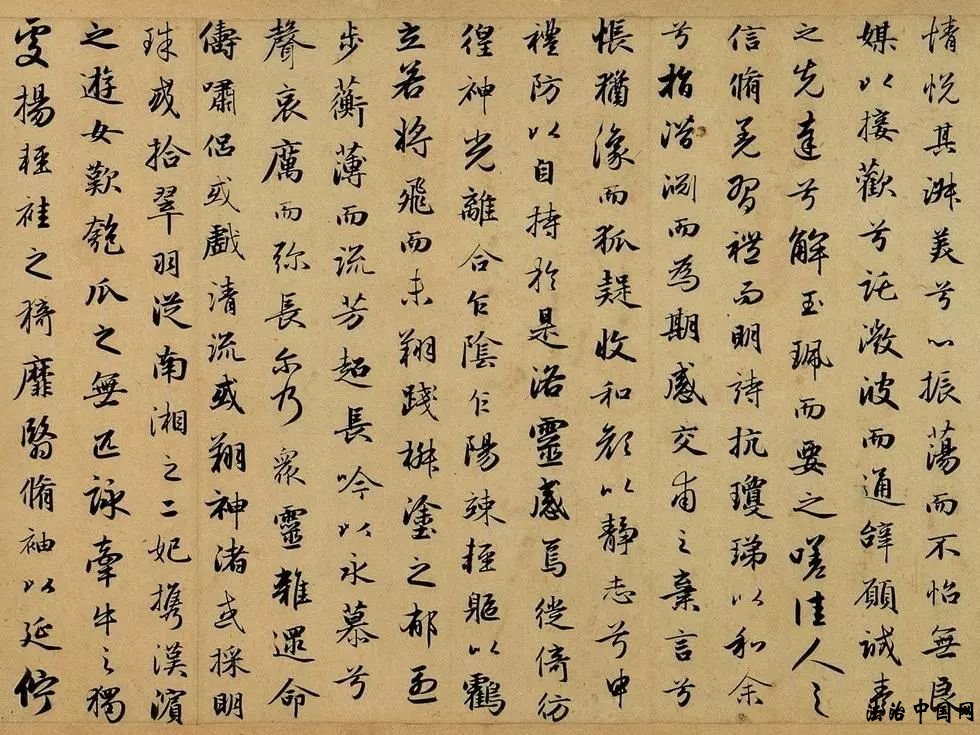 情悅其淑美兮心振蕩而不怡無良
媒以接歡兮託微波而通辭願誠素
之先達兮解玉珮而要之嗟佳人之
信脩羌習禮而明詩抗瓊珶以和余
兮指潛淵而為期感交甫之棄言兮
悵猶豫而狐疑收和顏以靜志兮申
禮防以自持於是洛靈感焉徙倚彷
徨神光離合乍陰乍陽竦輕軀以鶴
立若將飛而未翔踐椒塗之郁烈
步蘅薄而流芳超長吟以永慕兮
聲哀厲而弥長尔乃眾靈雜遝命
儔嘯侶或戲清流或翔神渚或採明
珠或拾翠羽從南湘之二妃攜漢濱
之遊女歎匏瓜之無匹詠牽牛之獨
處揚輕袿之猗靡翳脩袖以延佇
法治中国网